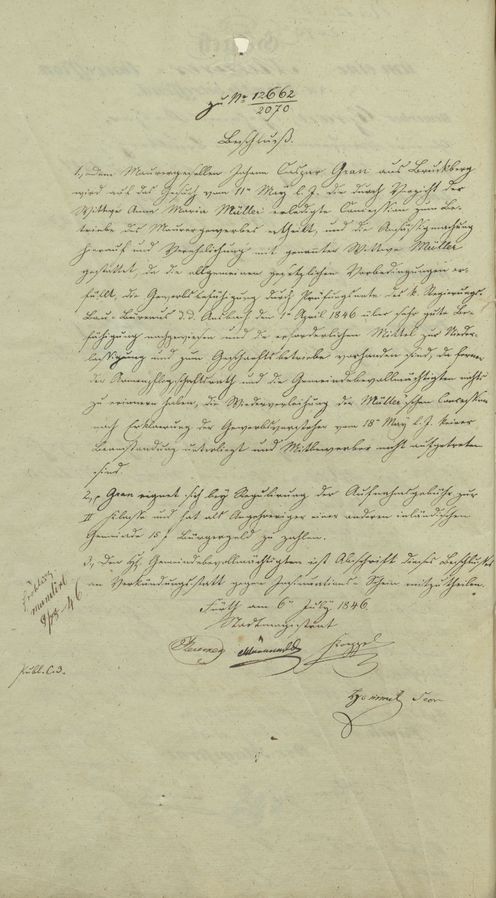 zu No 12662
2070
Beschluß.
1., dem Maurergesellen Johann Caspar Gran aus Bruckberg
wird auf das Gesuch vom 11n May l. J. die durch Verzicht der
Wittwe Anna Maria Müller erledigte Concession zum Be-
triebe des Maurergewerbes ertheilt, und die Ansässigmachung
hierauf und Verehelichung mit genannter Wittwe Müller
gestattet, da die allgemeinen gesetzlichen Vorbedingungen er-
füllt, die Gewerbsbefähigung durch Prüfungsnote des k. Regierungs-
Bau-Bureaus d.d. Ansbach den 1n April 1846 über sehr gute Be-
fähigung nachgewiesen und die erforderlichen Mittel zur Nieder-
lassigung und zum Geschäftsbetriebe vorhanden sind, da ferner
der Armenpflegschaftsrath und die Gemeindebevollmächtigten nichts
zu erinnern haben, die Wiederverleihung der Müller'schen Concession
nach Erklaerung der Gewerbsvorsteher vom 18n May l. J. keiner
Beanstandung unterliegt und Mitbewerber nicht aufgetreten
sind.
2., Gran eignet sich bey Regulirung der Aufnahmsgebühr zur
II Klasse und hat als Angehöriger einer anderen inländischen
Gemeinde 15 f Bürgergeld zu zahlen.
3., Den Gemeindebevollmächtigten ist Abschrift dieses Beschlußes
an Verkündungsstatt gegen Insinuations-Schein mitzutheilen.
Fürth am 6n July 1846.
Stadtmagistrat
mundirt
46
Publ. Cod.